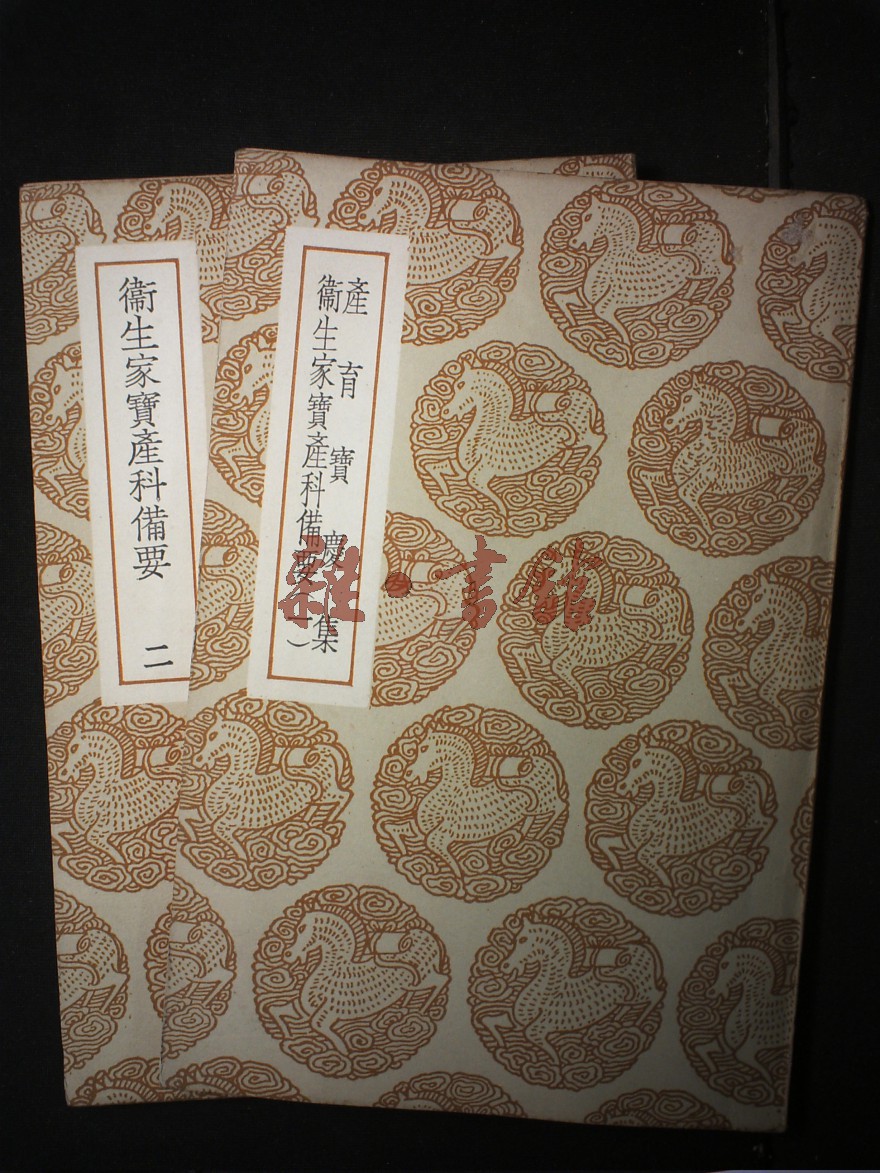 產育寶慶集
衞生家寶產科備要(一)
衞生家寶產科備要 二
雜·書館